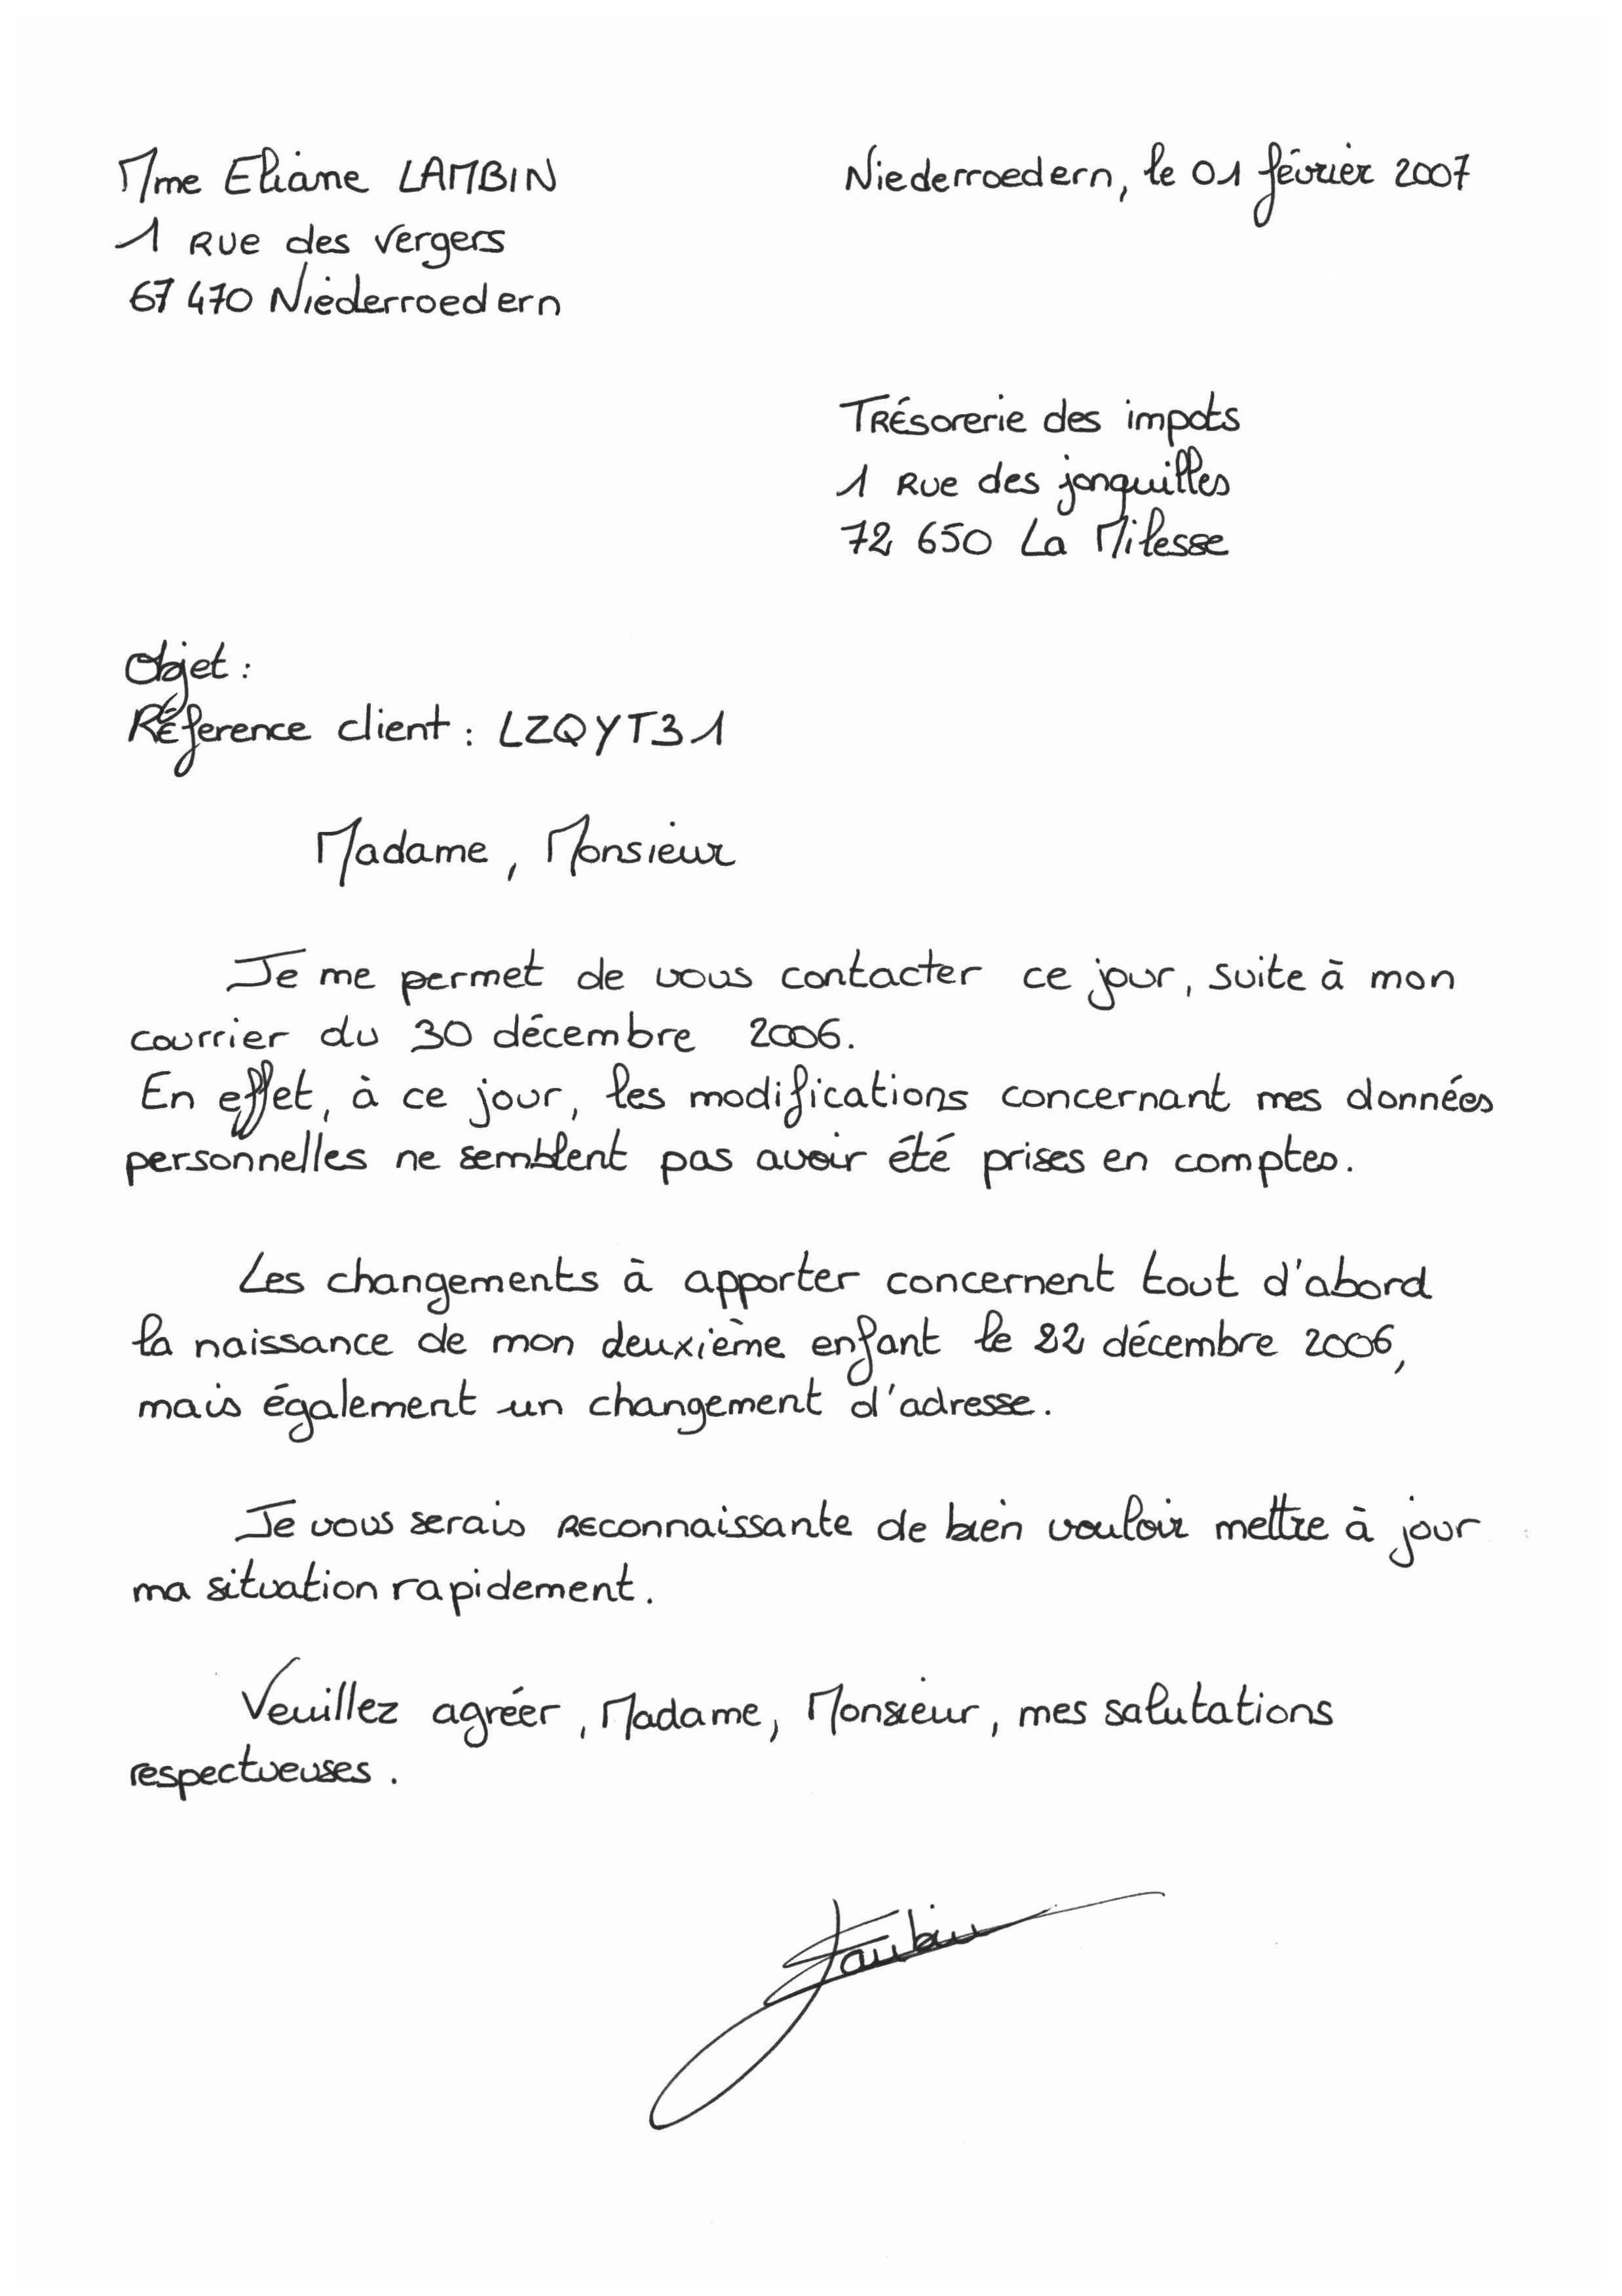 Mme Eliane LAMBIN
1 Rue des vergers
67 470 Niederroedern
Niederroedern, le 01 février 2007
Trésorerie des impots
1 Rue des jonquilles
72 650 La Milesse
Objet :
Réference client : LZQYT31
Madame, Monsieur
Je me permet de vous contacter ce jour, suite à mon
courrier du 30 décembre 2006.
En effet, à ce jour, les modifications concernant mes données
personnelles ne semblent pas avoir été prises en comptes.
Les changements à apporter concernent tout d'abord
la naissance de mon deuxième enfant le 22 décembre 2006,
mais également un changement d'adresse.
Je vous serais reconnaissante de bien vouloir mettre à jour
ma situation rapidement.
Veuillez agréer, Madame, Monsieur, mes salutations
respectueuses.
Lambin